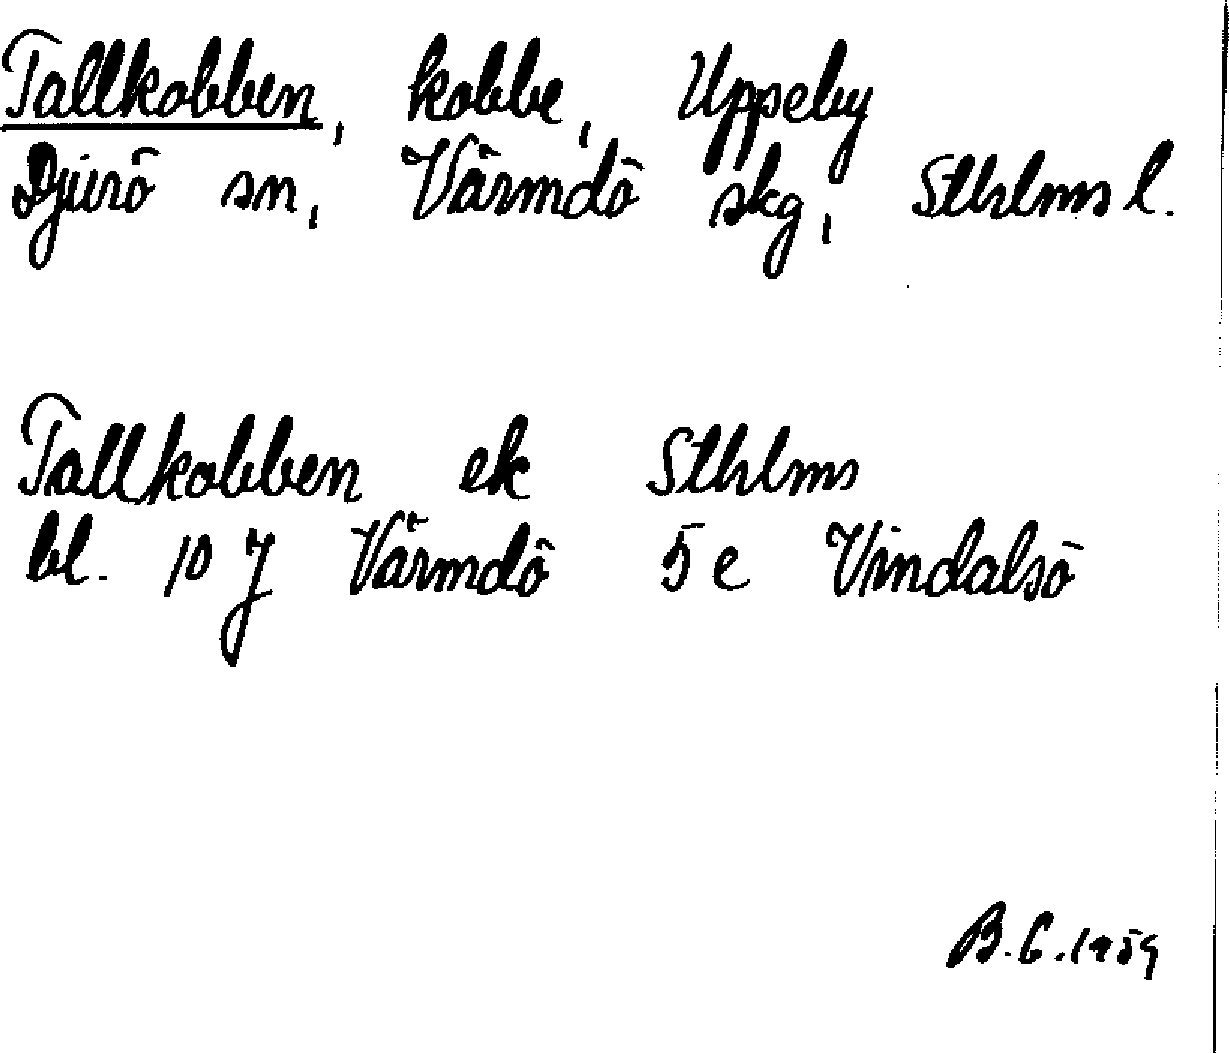 Tallkobben, kobbe, Uppeby
Djurö sn, Värmdö skg, Sthlms l.
Tallkobben ek Sthlms
bl. 10 J Värmdö 5 e Vindalsö
B.G.1959